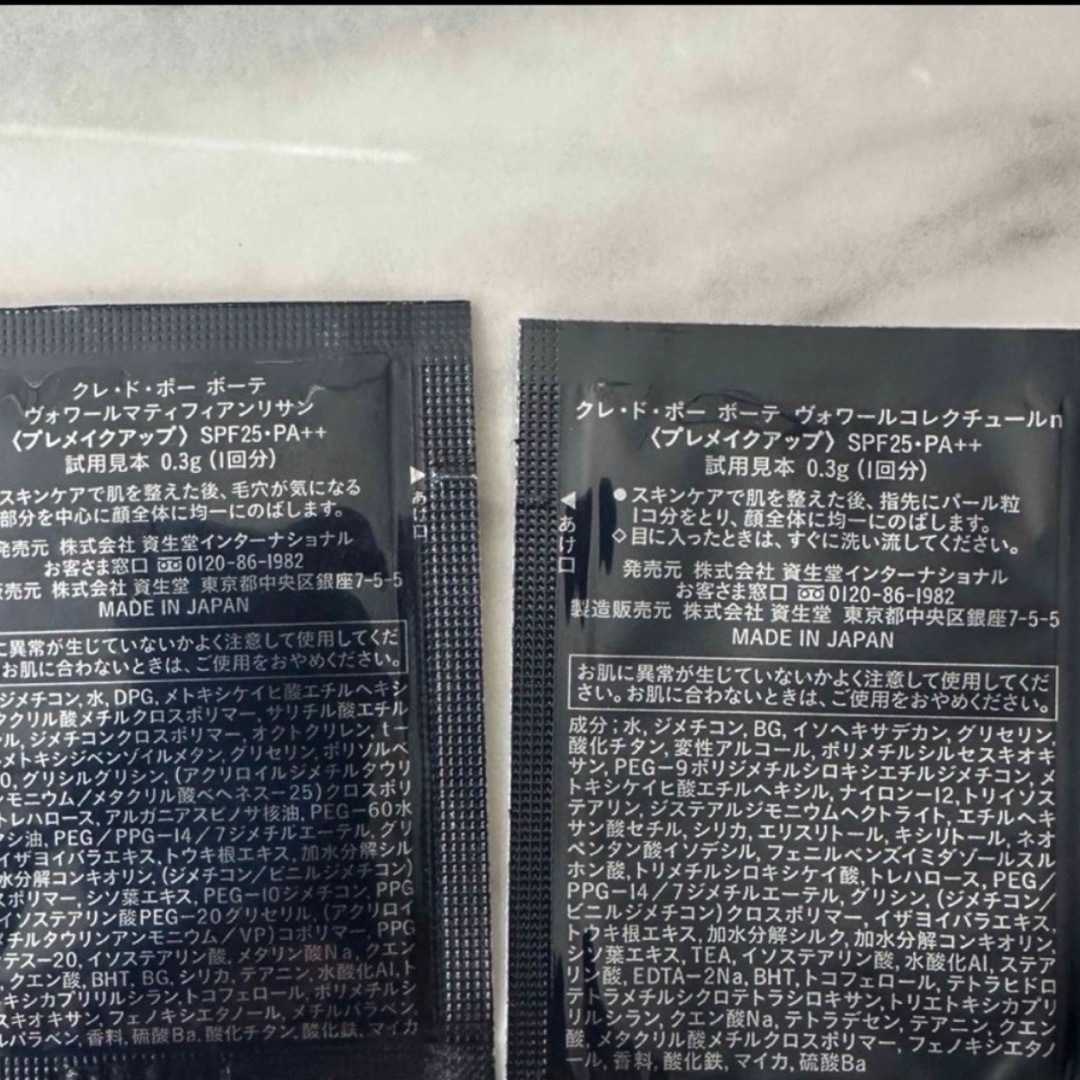 クレ・ド・ポー ボーテ
ヴォワールマティフィアンリサン
〈プレメイクアップ〉 SPF25・PA++
試用見本 0.3g (1回分)
スキンケアで肌を整えた後、毛穴が気になる
部分を中心に顔全体に均一にのばします。
発売元 株式会社 資生堂インターナショナル
お客さま窓口 0120-86-1982
販売元 株式会社 資生堂 東京都中央区銀座7-5-5
MADE IN JAPAN
に異常が生じていないかよく注意して使用してくだ
お肌に合わないときは、ご使用をおやめください。
ジメチコン, 水, DPG, メトキシケイヒ酸エチルヘキシ
タクリル酸メチルクロスポリマー, サリチル酸エチル
ル, ジメチコンクロスポリマー, オクトクリレン, t-
メトキシジベンゾイルメタン, グリセリン, ポリソルベ
0, グリシルグリシン, (アクリロイルジメチルタウリ
ンモニウム/メタクリル酸ベヘネス-25)クロスポリ
トレハロース, アルガニアスピノサ核油, PEG-60水
シ油, PEG/PPG-14/7ジメチルエーテル, グリ
イザヨイバラエキス, トウキ根エキス, 加水分解シル
水分解コンキオリン, (ジメチコン/ビニルジメチコン)
スポリマー, シソ葉エキス, PEG-10ジメチコン, PPG
イソステアリン酸PEG-20グリセリル, (アクリロイ
メチルタウリンアンモニウム/VP)コポリマー, PPG
テス-20, イソステアリン酸, メタリン酸Na, クエン
, クエン酸, BHT, BG, シリカ, テアニン, 水酸化Al, ト
キシカプリリルシラン, トコフェロール, ポリメチルシ
スキオキサン, フェノキシエタノール, メチルパラベン
ルパラベン, 香料, 硫酸Ba, 酸化チタン, 酸化鉄, マイカ
あけ口
クレ・ド・ポー ボーテ ヴォワールコレクチュールn
〈プレメイクアップ〉 SPF25・PA++
試用見本 0.3g (1回分)
●スキンケアで肌を整えた後、指先にパール粒
1コ分をとり、顔全体に均一にのばします。
◇目に入ったときは、すぐに洗い流してください。
発売元 株式会社 資生堂インターナショナル
お客さま窓口 0120-86-1982
製造販売元 株式会社 資生堂 東京都中央区銀座7-5-5
MADE IN JAPAN
お肌に異常が生じていないかよく注意して使用してくだ
さい。お肌に合わないときは、ご使用をおやめください。
成分 ; 水, ジメチコン, BG, イソヘキサデカン, グリセリン,
酸化チタン, 変性アルコール, ポリメチルシルセスキオキ
サン, PEG-9ポリジメチルシロキシエチルジメチコン, メ
トキシケイヒ酸エチルヘキシル, ナイロン-12, トリイソス
テアリン, ジステアルジモニウムヘクトライト, エチルヘキ
サン酸セチル, シリカ, エリスリトール, キシリトール, ネオ
ペンタン酸イソデシル, フェニルベンズイミダゾールスル
ホン酸, トリメチルシロキシケイ酸, トレハロース, PEG/
PPG-14/7ジメチルエーテル, グリシン, (ジメチコン/
ビニルジメチコン)クロスポリマー, イザヨイバラエキス,
トウキ根エキス, 加水分解シルク, 加水分解コンキオリン,
シソ葉エキス, TEA, イソステアリン酸, 水酸化Al, ステア
リン酸, EDTA-2Na, BHT, トコフェロール, テトラヒドロ
テトラメチルシクロテトラシロキサン, トリエトキシカプリ
リルシラン, クエン酸Na, テトラデセン, テアニン, クエン
酸, メタクリル酸メチルクロスポリマー, フェノキシエタノ
ール, 香料, 酸化鉄, マイカ, 硫酸Ba
あけ口